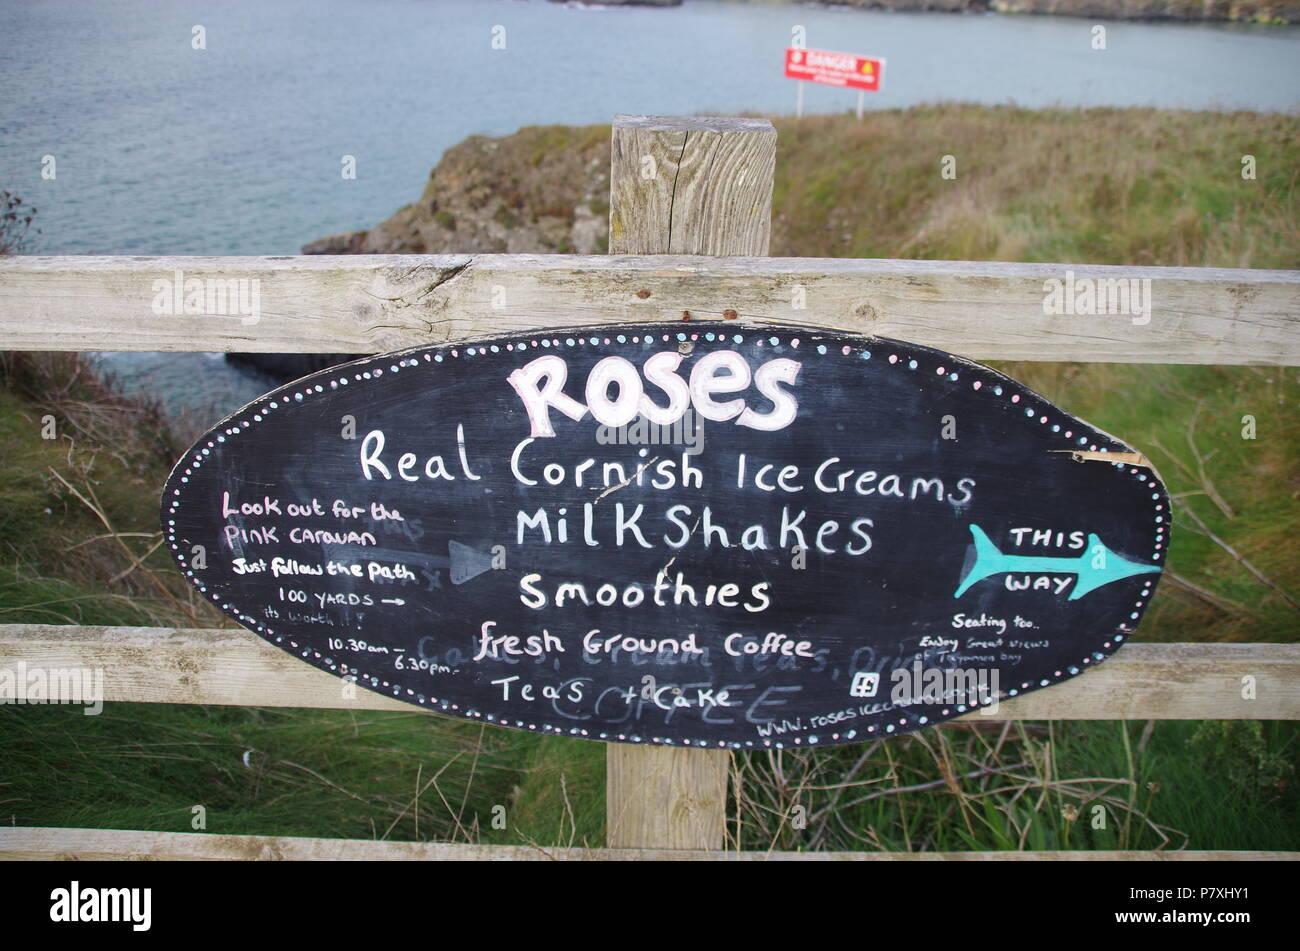 DANGER
ROSES
Real Cornish Ice Creams
Milkshakes
Smoothies
fresh Ground Coffee
Teas + Cake
Look out for the
PINK CARAVAN
Just follow the Path
100 YARDS →
its worth it!
10.30am –
6.30pm.
THIS
WAY
Seating too..
Enjoy Great views
of Treyarnon bay
www.rosesicecream.co.uk
COFFEE
alamy stock photo
alamy
Image ID: P7XHY1
www.alamy.com